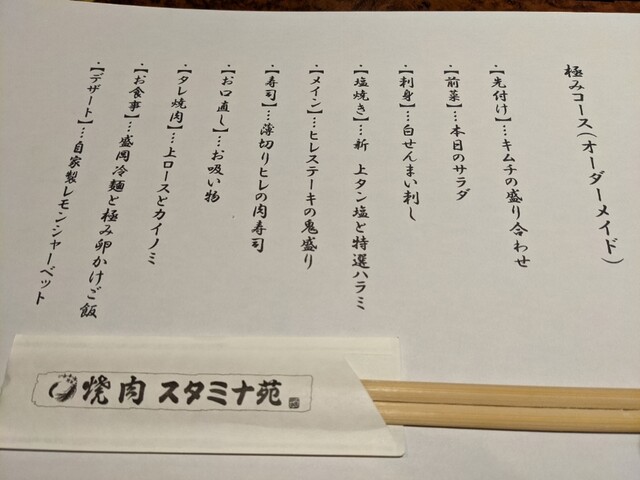 極みコース(オーダーメイド)
・【先付け】…キムチの盛り合わせ
・【前菜】…本日のサラダ
・【刺身】…白せんまい刺し
・【塩焼き】…新 上タン塩と特選ハラミ
・【メイン】…ヒレステーキの鬼盛り
・【寿司】…薄切りヒレの肉寿司
・【お口直し】…お吸い物
・【タレ焼肉】…上ロースとカイノミ
・【お食事】…盛岡冷麺と極み卵かけご飯
・【デザート】…自家製レモンシャーベット
焼肉 スタミナ苑